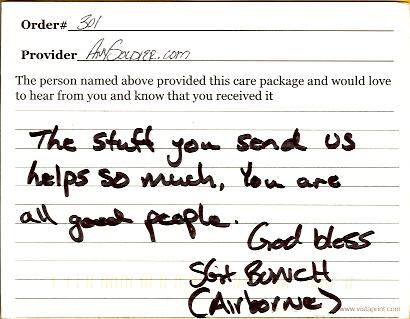 Order# 301
Provider AnySoldier.com
The person named above provided this care package and would love
to hear from you and know that you received it
The stuff you send us
helps so much, You are
all good people.
God bless
SGT BUNCH
(Airborne)
www.vistaprint.com